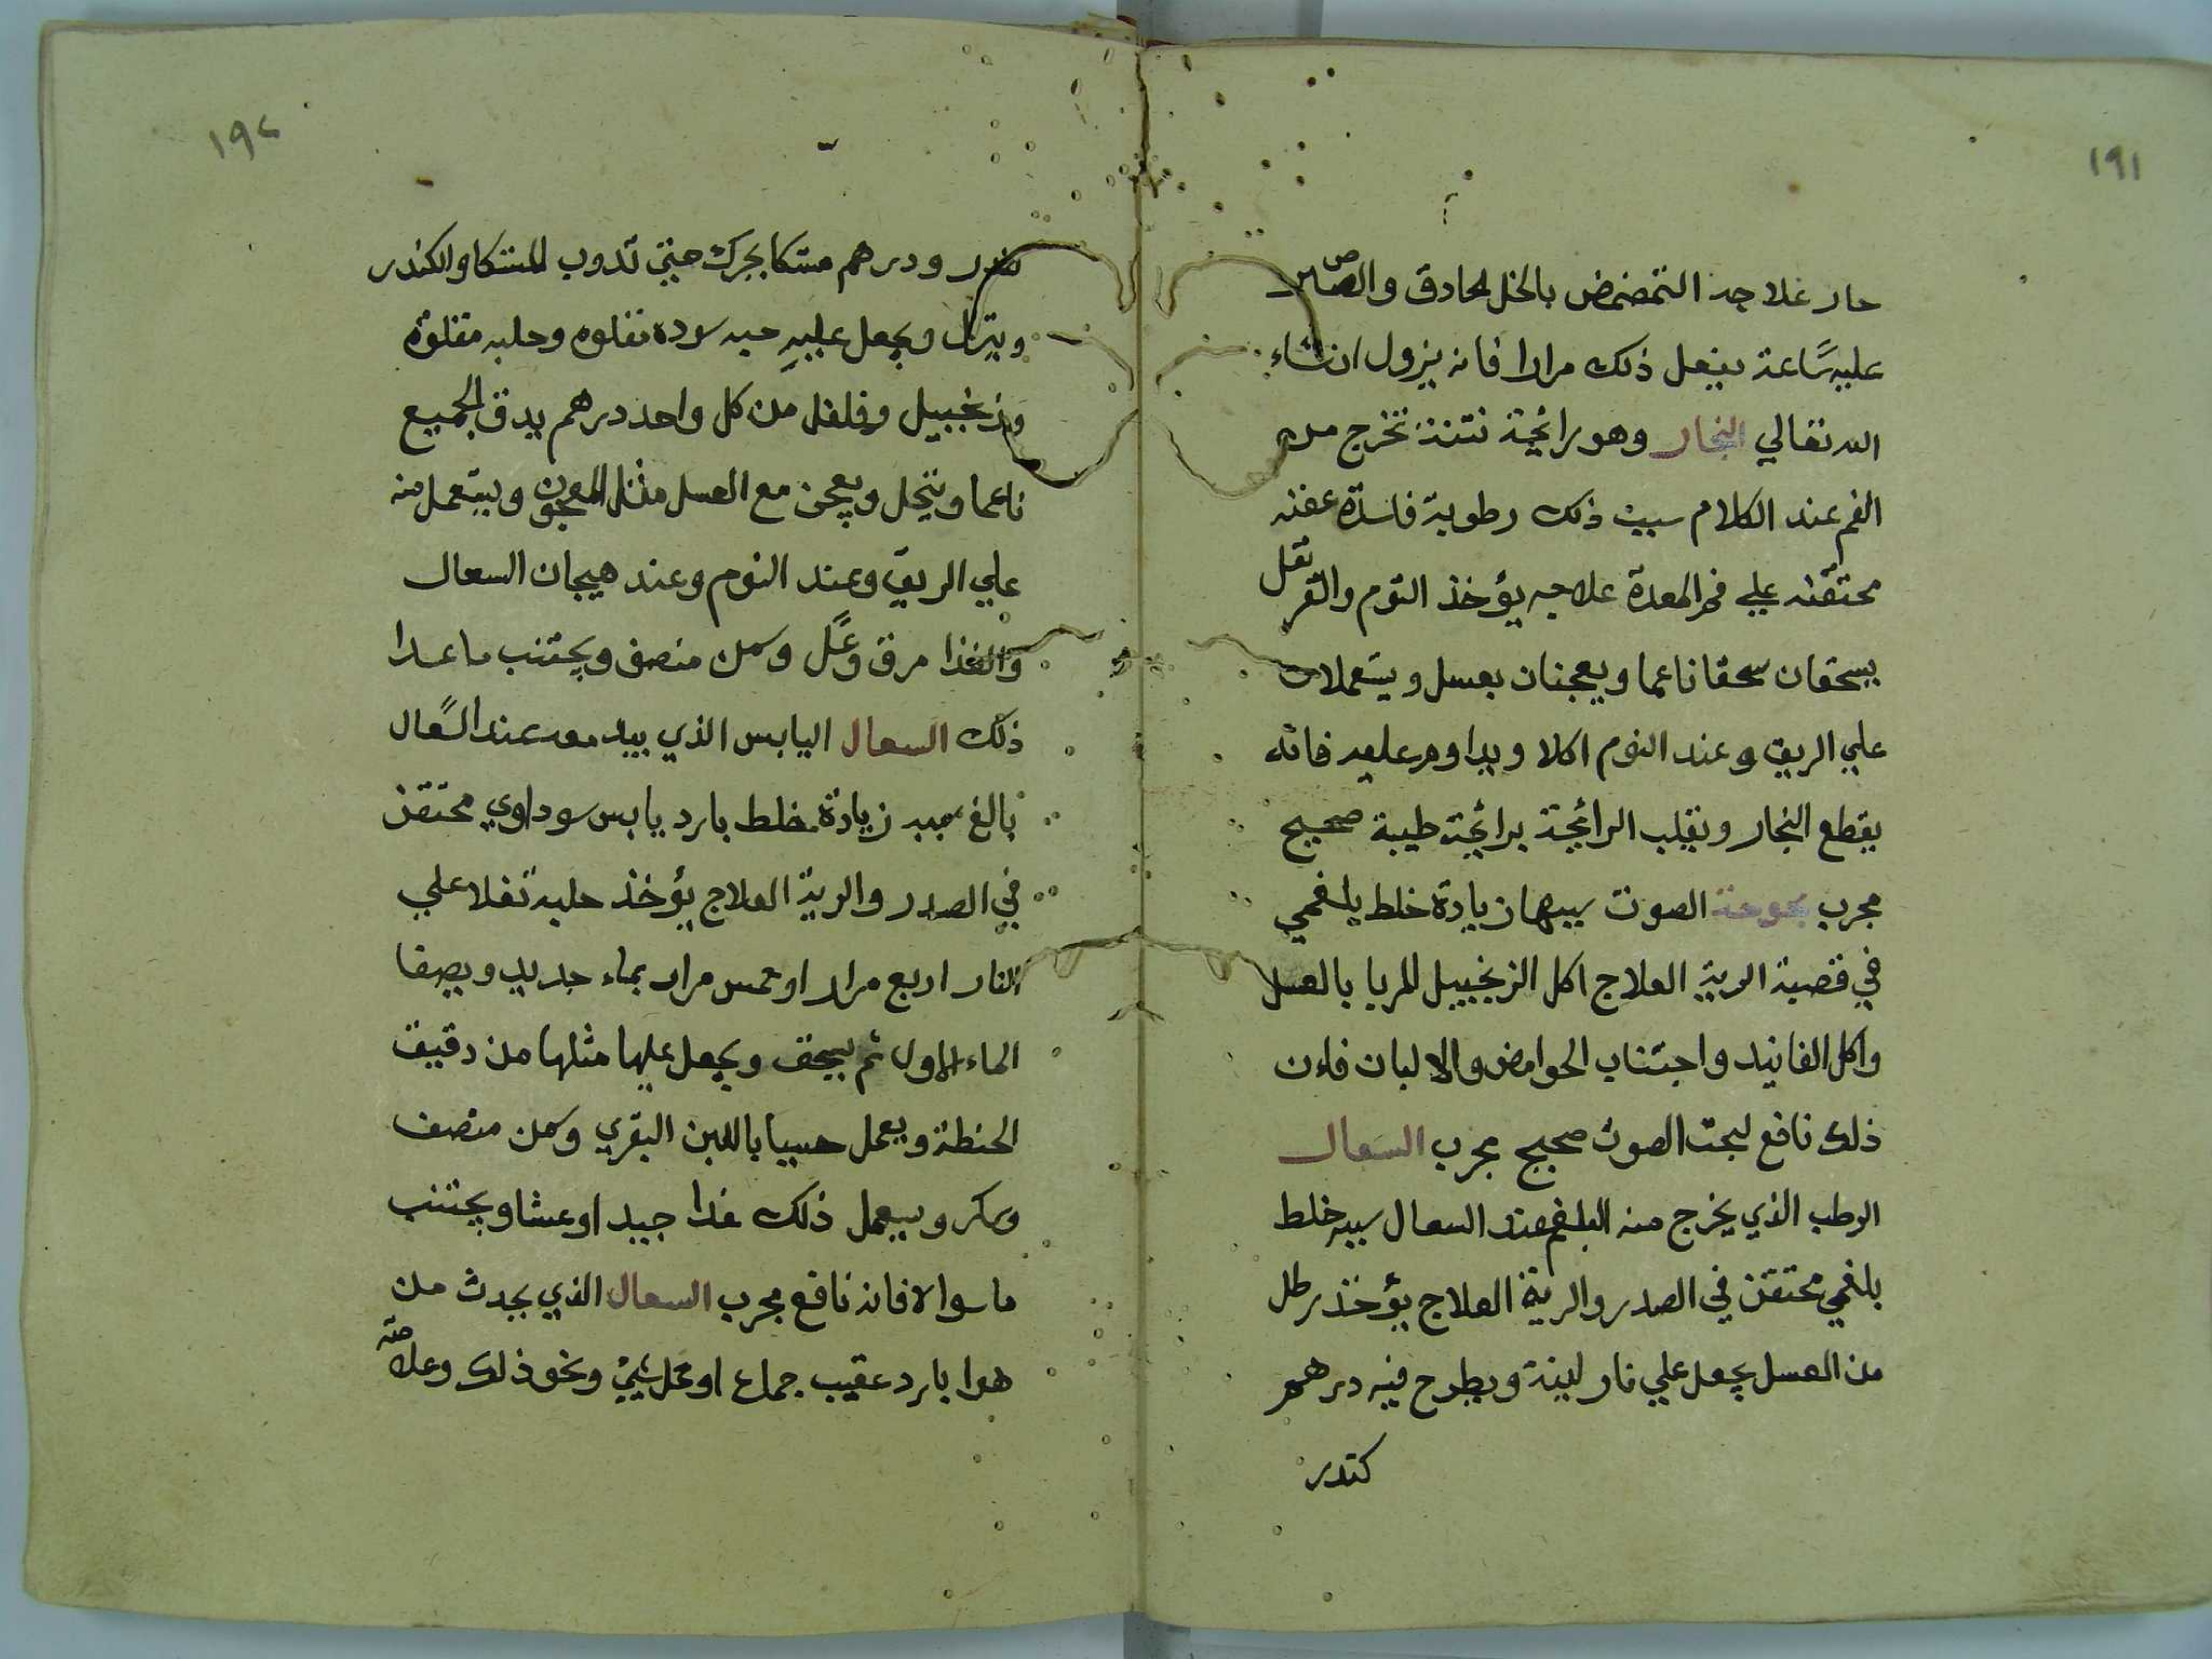 ١٩١
حار علاجه التمضمض بالخل الحادق والصبر
عليه ساعة يفعل ذلك مرارا فانه يزول ان شاء
الله تعالي البخار وهو رائحة نتنة تخرج من
الفم عند الكلام سببت ذلك رطوبة فاسدة عفنه
محتقنه علي فم المعدة علاجه يؤخذ التوم والقرنفل
يسحقان سحقا ناعما ويعجنان بعسل ويستعملان
علي الريق وعند النوم اكلا ويداوم عليه فانه
يقطع البخار ويقلب الرائحة برائحة طيبة صحيح
مجرب بحوحة الصوت سببها زيادة خلط بلغمي
في قصبة الرية العلاج اكل الزنجبيل المربا بالعسل
واكل الفانيد واجتناب الحوامض والالبان فان
ذلك نافع لبحت الصوت صحيح مجرب السعال
الرطب الذي يخرج منه البلغم عند السعال سببه خلط
بلغمي محتقن في الصدر والرية العلاج يؤخذ رطل
من العسل يجعل علي نار لينة ويطرح فيه درهم
كندر
١٩٢
كندر ودرهم مستكا يحرك حتي تدوب المستكا والكندر
وينزل ويجعل عليه حبه سوده مقلوه وحلبه مقلوة
وزنجبيل وفلفل من كل واحد درهم يدق الجميع
ناعما وينخل ويعجن مع العسل مثل المعجون ويستعمل منه
علي الريق وعند النوم وعند هيجان السعال
والغذا مرق وعسل وسمن منصف ويجتنب ما عدا
ذلك السعال اليابس الذي معه عند السعال
بالغ سببه زيادة خلط بارد يابس سوداوي محتقن
في الصدر والرية العلاج يؤخذ حلبة تغلا علي
النار اربع مرار او خمس مرار بماء جديد ويصفا
الماء الاول ثم يسحق ويجعل عليها مثلها من دقيق
الحنطة ويعمل حسيا باللبن البقري وسمن منصف
وسكر ويستعمل ذلك غدا جيد او عشا ويجتنب
ما سوا لا فانه نافع مجرب السعال الذي يحدث من
هوا بارد عقيب جماع او عمل شيئ ونحو ذلك وعلامته